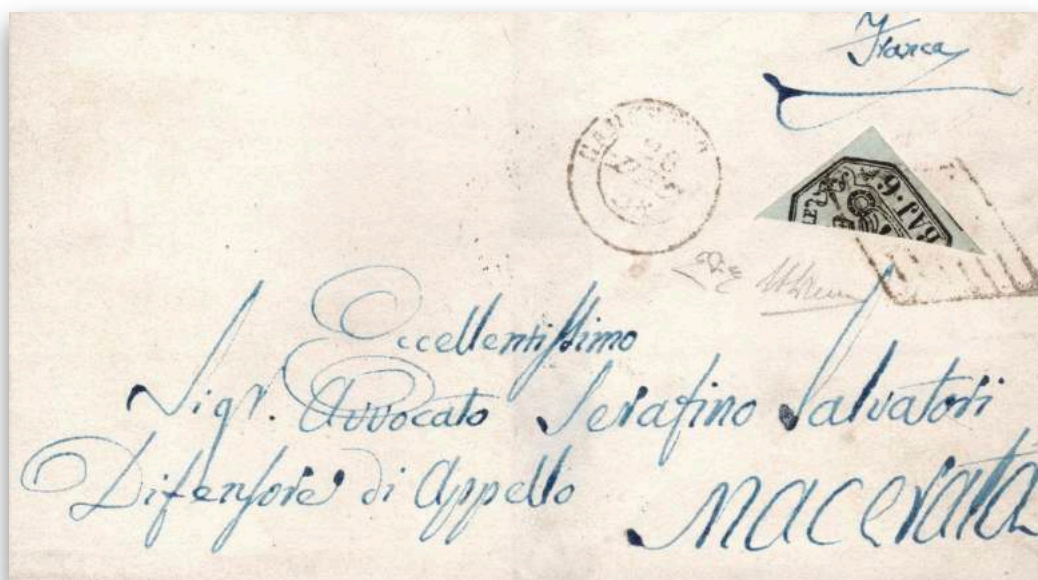 Franca
BAJ. 6
Eccellentissimo
Sigr. Avvocato Serafino Salvatori
Difensore di Appello
Macerata